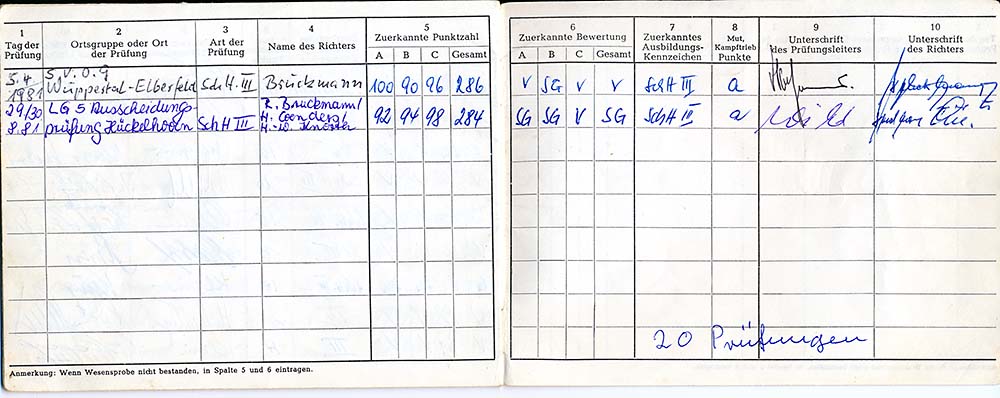 1 2 3 4 5 6 7 8 9 10
Tag der Prüfung Ortsgruppe oder Ort der Prüfung Art der Prüfung Name des Richters Zuerkannte Punktzahl Zuerkannte Bewertung Zuerkanntes Ausbildungs-Kennzeichen Mut, Kampftrieb Punkte Unterschrift des Prüfungsleiters Unterschrift des Richters
A B C Gesamt A B C
5.4 S.V.O.G
1981 Wuppertal-Elberfeld SchH III Brückmann 100 90 96 286 V SG V V SchH III a
29/30 LG 5 Ausscheidungs- R. Brückmann/
8.81 prüfung Hückelhoven SchH III H. Coenders/ 92 94 98 284 SG SG V SG SchH III a
H.-W.
20 Prüfungen
Anmerkung: Wenn Wesensprobe nicht bestanden, in Spalte 5 und 6 eintragen.